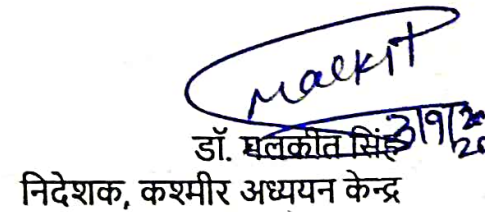 Malkit
3/9/20
डॉ. मलकीत सिंह
निदेशक, कश्मीर अध्ययन केन्द्र